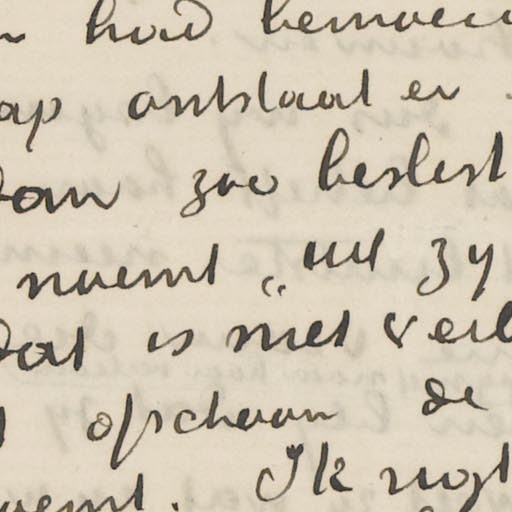 hoid bemoeii
ap ontslaat er
dan zoo beslist
noemt „uit zy
dat is niet veil
ofschoon de
oemt. Ik nogt